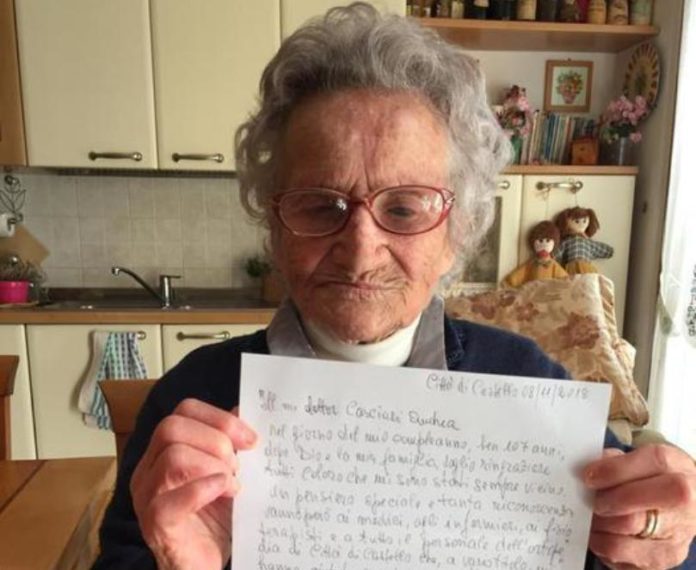 Città di Castello 08/11/2018
Ill mio dottor Casciari Andrea
nel giorno del mio compleanno, ben 107 anni,
dopo Dio e la mia famiglia, voglio ringraziare
tutti coloro che mi sono stati sempre vicino.
Un pensiero speciale e tanta riconoscenza
vanno però ai medici, agli infermieri, ai fisio
terapisti e a tutto il personale dell'ortope
dia di Città di Castello che, a
hanno